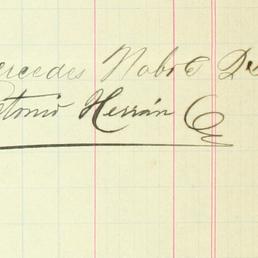 ercedes Noboa De
ntonio Herrán C